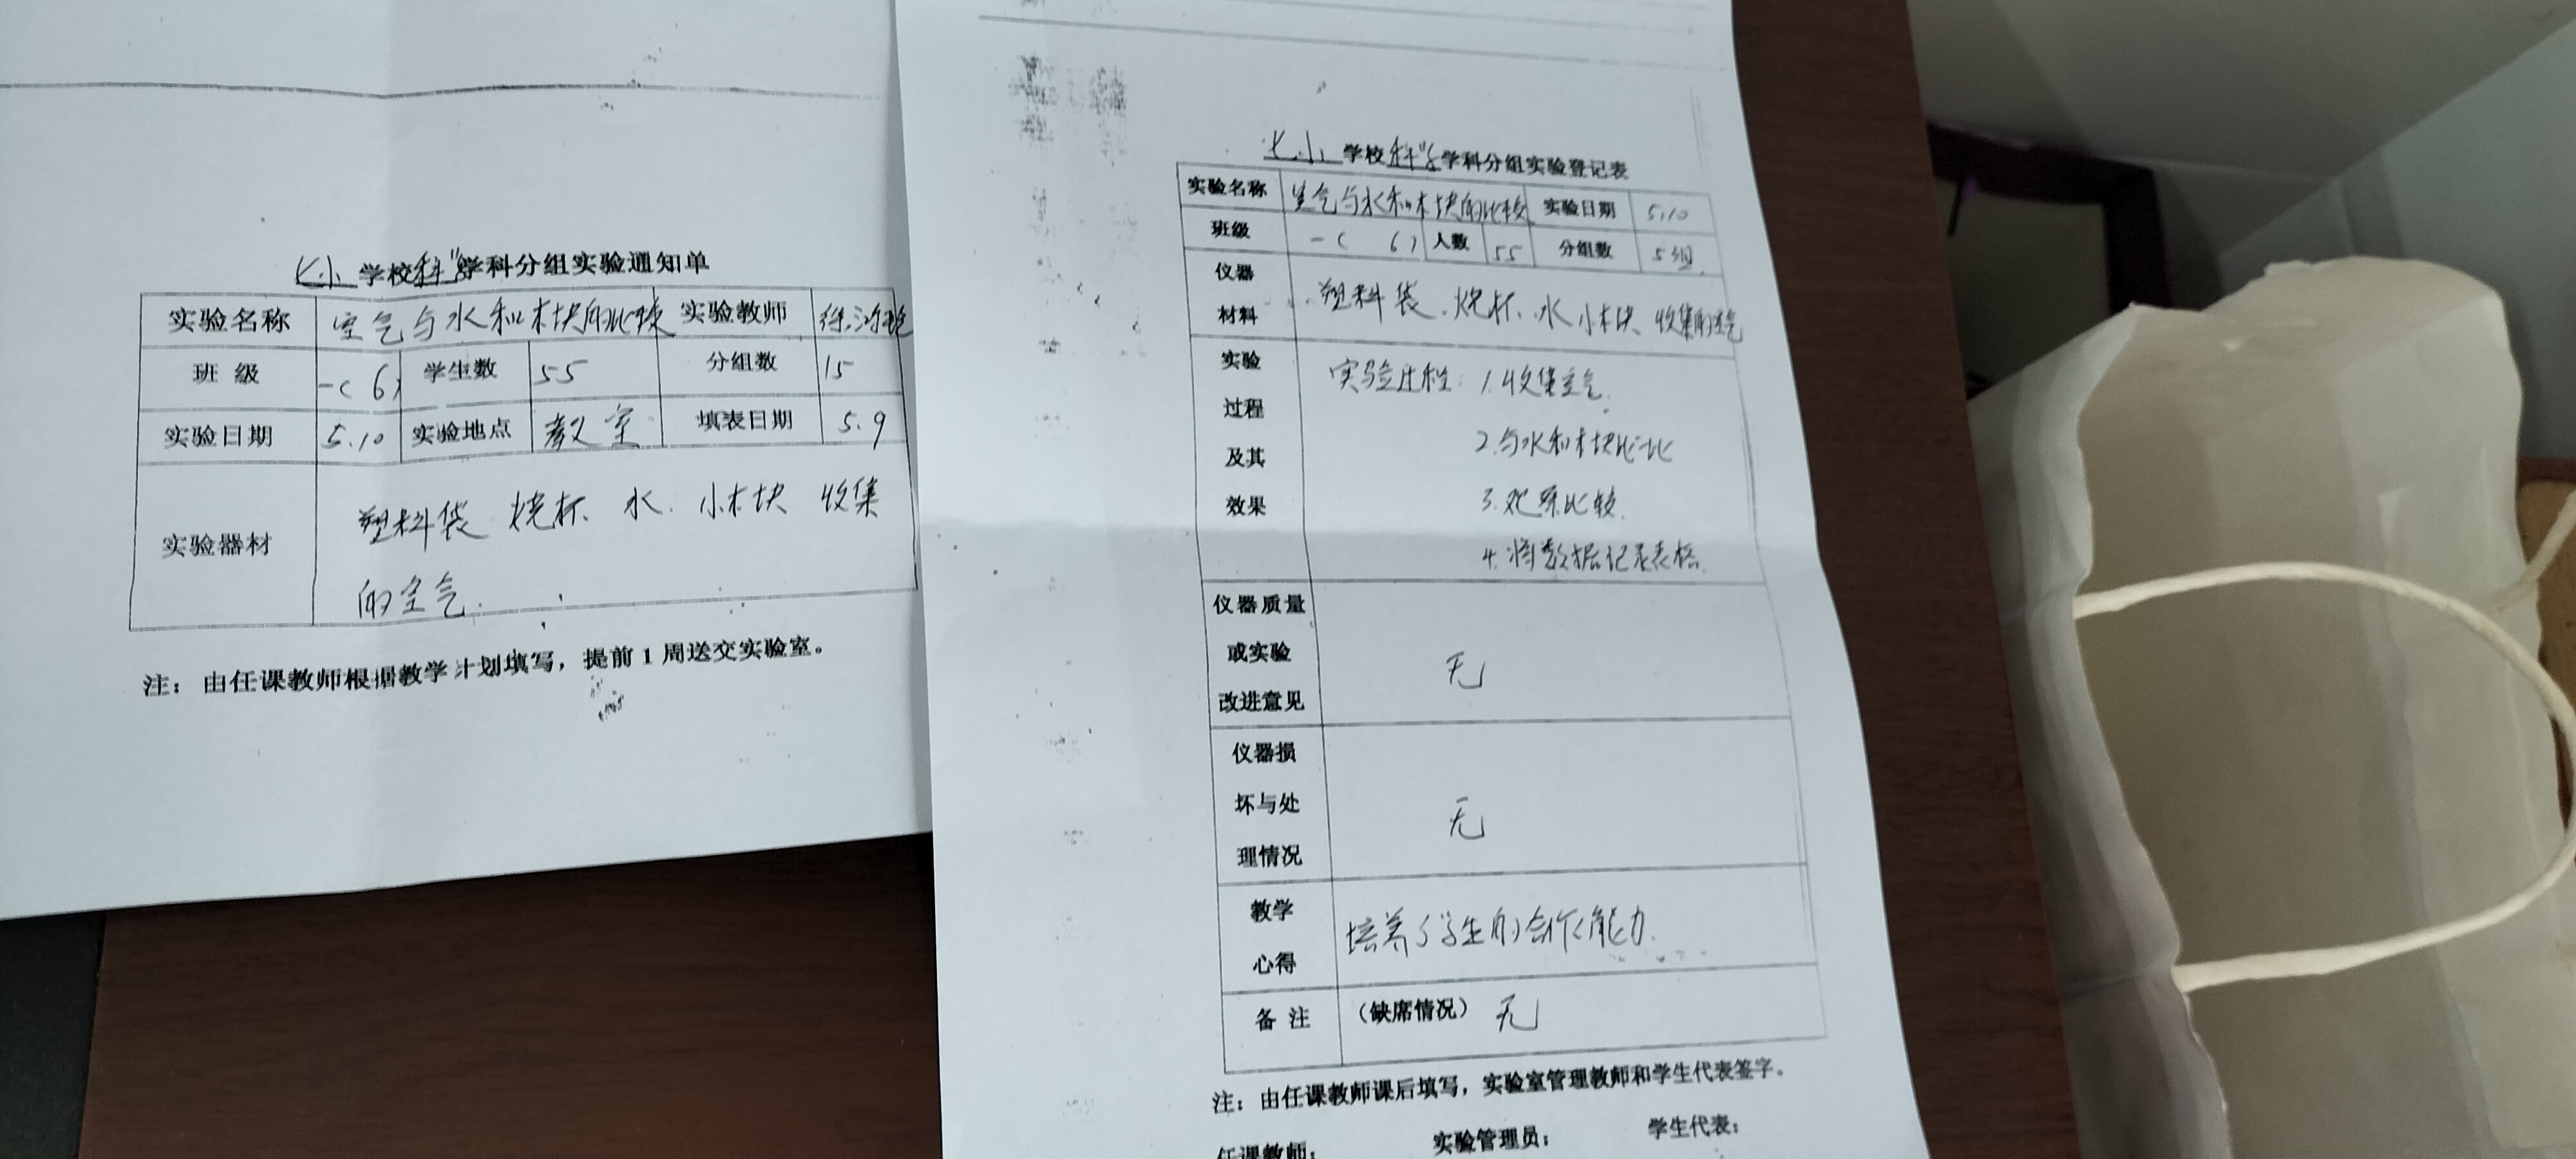 七小学校科学学科分组实验通知单
实验名称 空气与水和木块的比较 实验教师
班 级 一(6) 学生数 55 分组数 15
实验日期 5.10 实验地点 教室 填表日期 5.9
实验器材 塑料袋 烧杯、水、小木块 收集
的空气.
注：由任课教师根据教学计划填写，提前1周送交实验室。
七小学校科学学科分组实验登记表
实验名称 空气与水和木块的比较 实验日期 5.10
班级 一(6) 人数 55 分组数 5组
仪器
材料
塑料袋、烧杯、水 小木块 收集的空气
实验
过程
及其
效果
实验过程：1.收集空气.
2.与水和木块比一比
3.观察比较.
4.将数据记录表格.
仪器质量
或实验
改进意见
无
仪器损
坏与处
理情况
无
教学
心得
培养了学生的合作能力.
备 注 （缺席情况） 无
注：由任课教师课后填写，实验室管理教师和学生代表签字。
任课教师： 实验管理员： 学生代表：